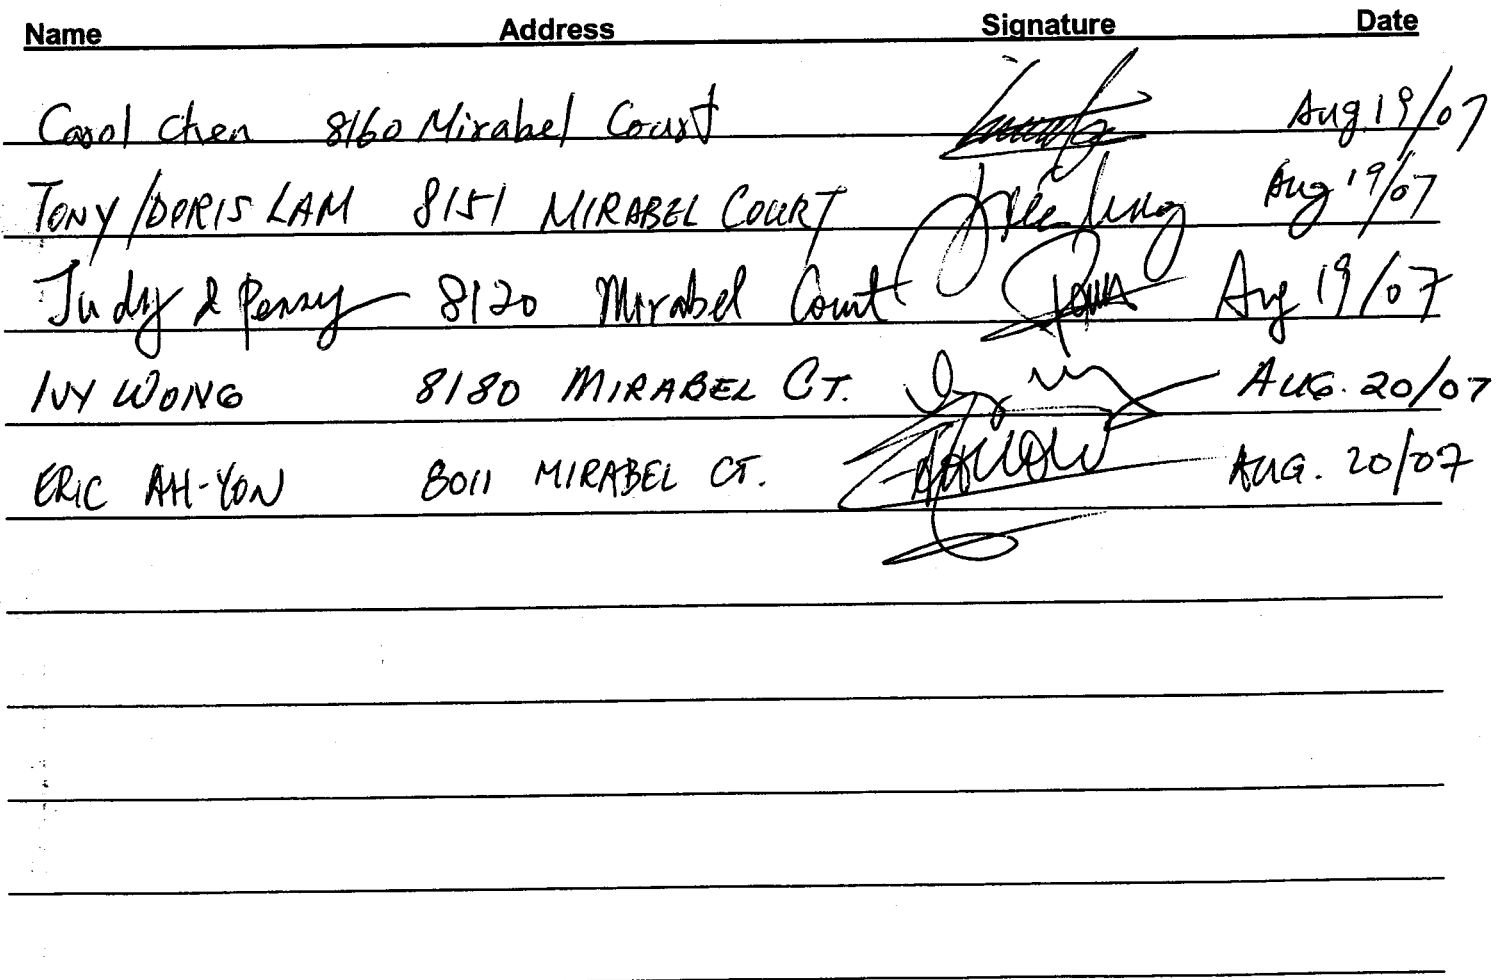 Name Address Signature Date
Carol Chen 8160 Mirabel Court Aug 19/07
TONY/DORIS LAM 8151 MIRABEL COURT Aug 19/07
Judy & Penny 8120 Mirabel Court Aug 19/07
IVY WONG 8180 MIRABEL CT. AUG. 20/07
ERIC AH-YON 8011 MIRABEL CT. AUG. 20/07